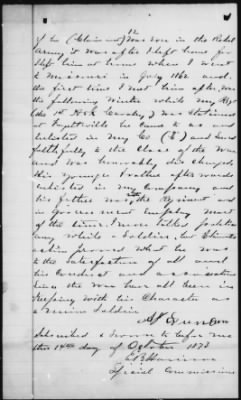 12
if he (Claimant) was ever in the Rebel
Army it was after I left home for
I left him at home when I went
to Missouri in July 1862 and
the first time I met him after was
the following Winter while my Regt
(the 1st Ark Cavalry) was Stationed
at Fayetteville he came to us and
enlisted in my Co and served
faithfully to the close of the War
and was honorably discharged
his younger brother afterwards
enlisted in my Company and
his father was with the Regiment and
in Government employ most
of the time. I never talked
any while a Soldier, but
action proved what he was
to the Satisfaction of all and
his Conduct and associations
since the War have all been in
Keeping with his Character as
a Union Soldier
Subscribed & sworn to before me
this 14th day of October 1873
E. B. Harrison
Special Commissioner